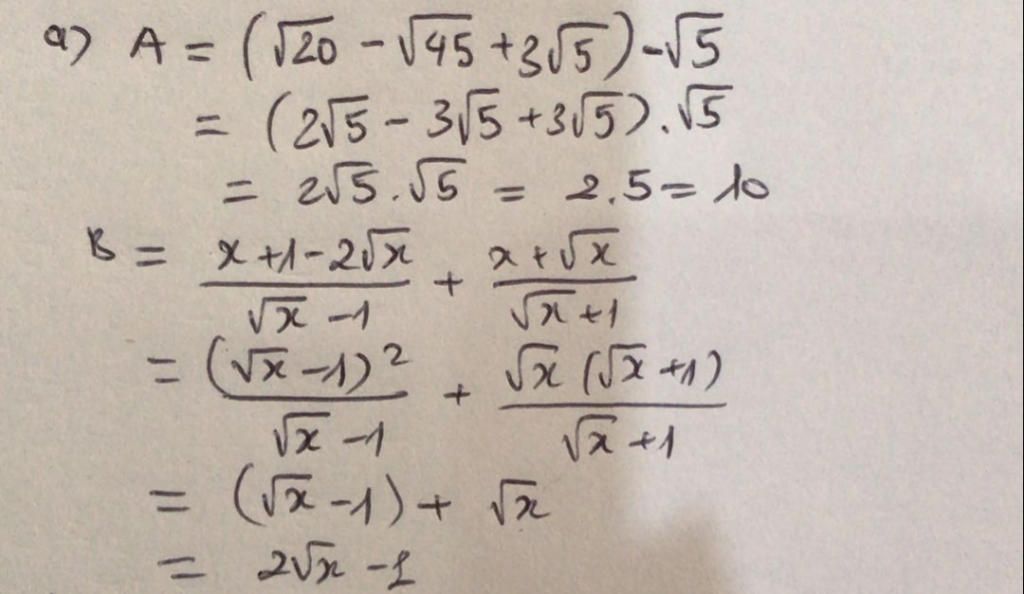 a) A = (√20 - √45 + 3√5) - √5
= (2√5 - 3√5 + 3√5) . √5
= 2√5 . √5 = 2.5 = 10
B = \frac{x + 1 - 2√x}{√x - 1} + \frac{x + √x}{√x + 1}
= \frac{(√x - 1)²}{√x - 1} + \frac{√x (√x + 1)}{√x + 1}
= (√x - 1) + √x
= 2√x - 1